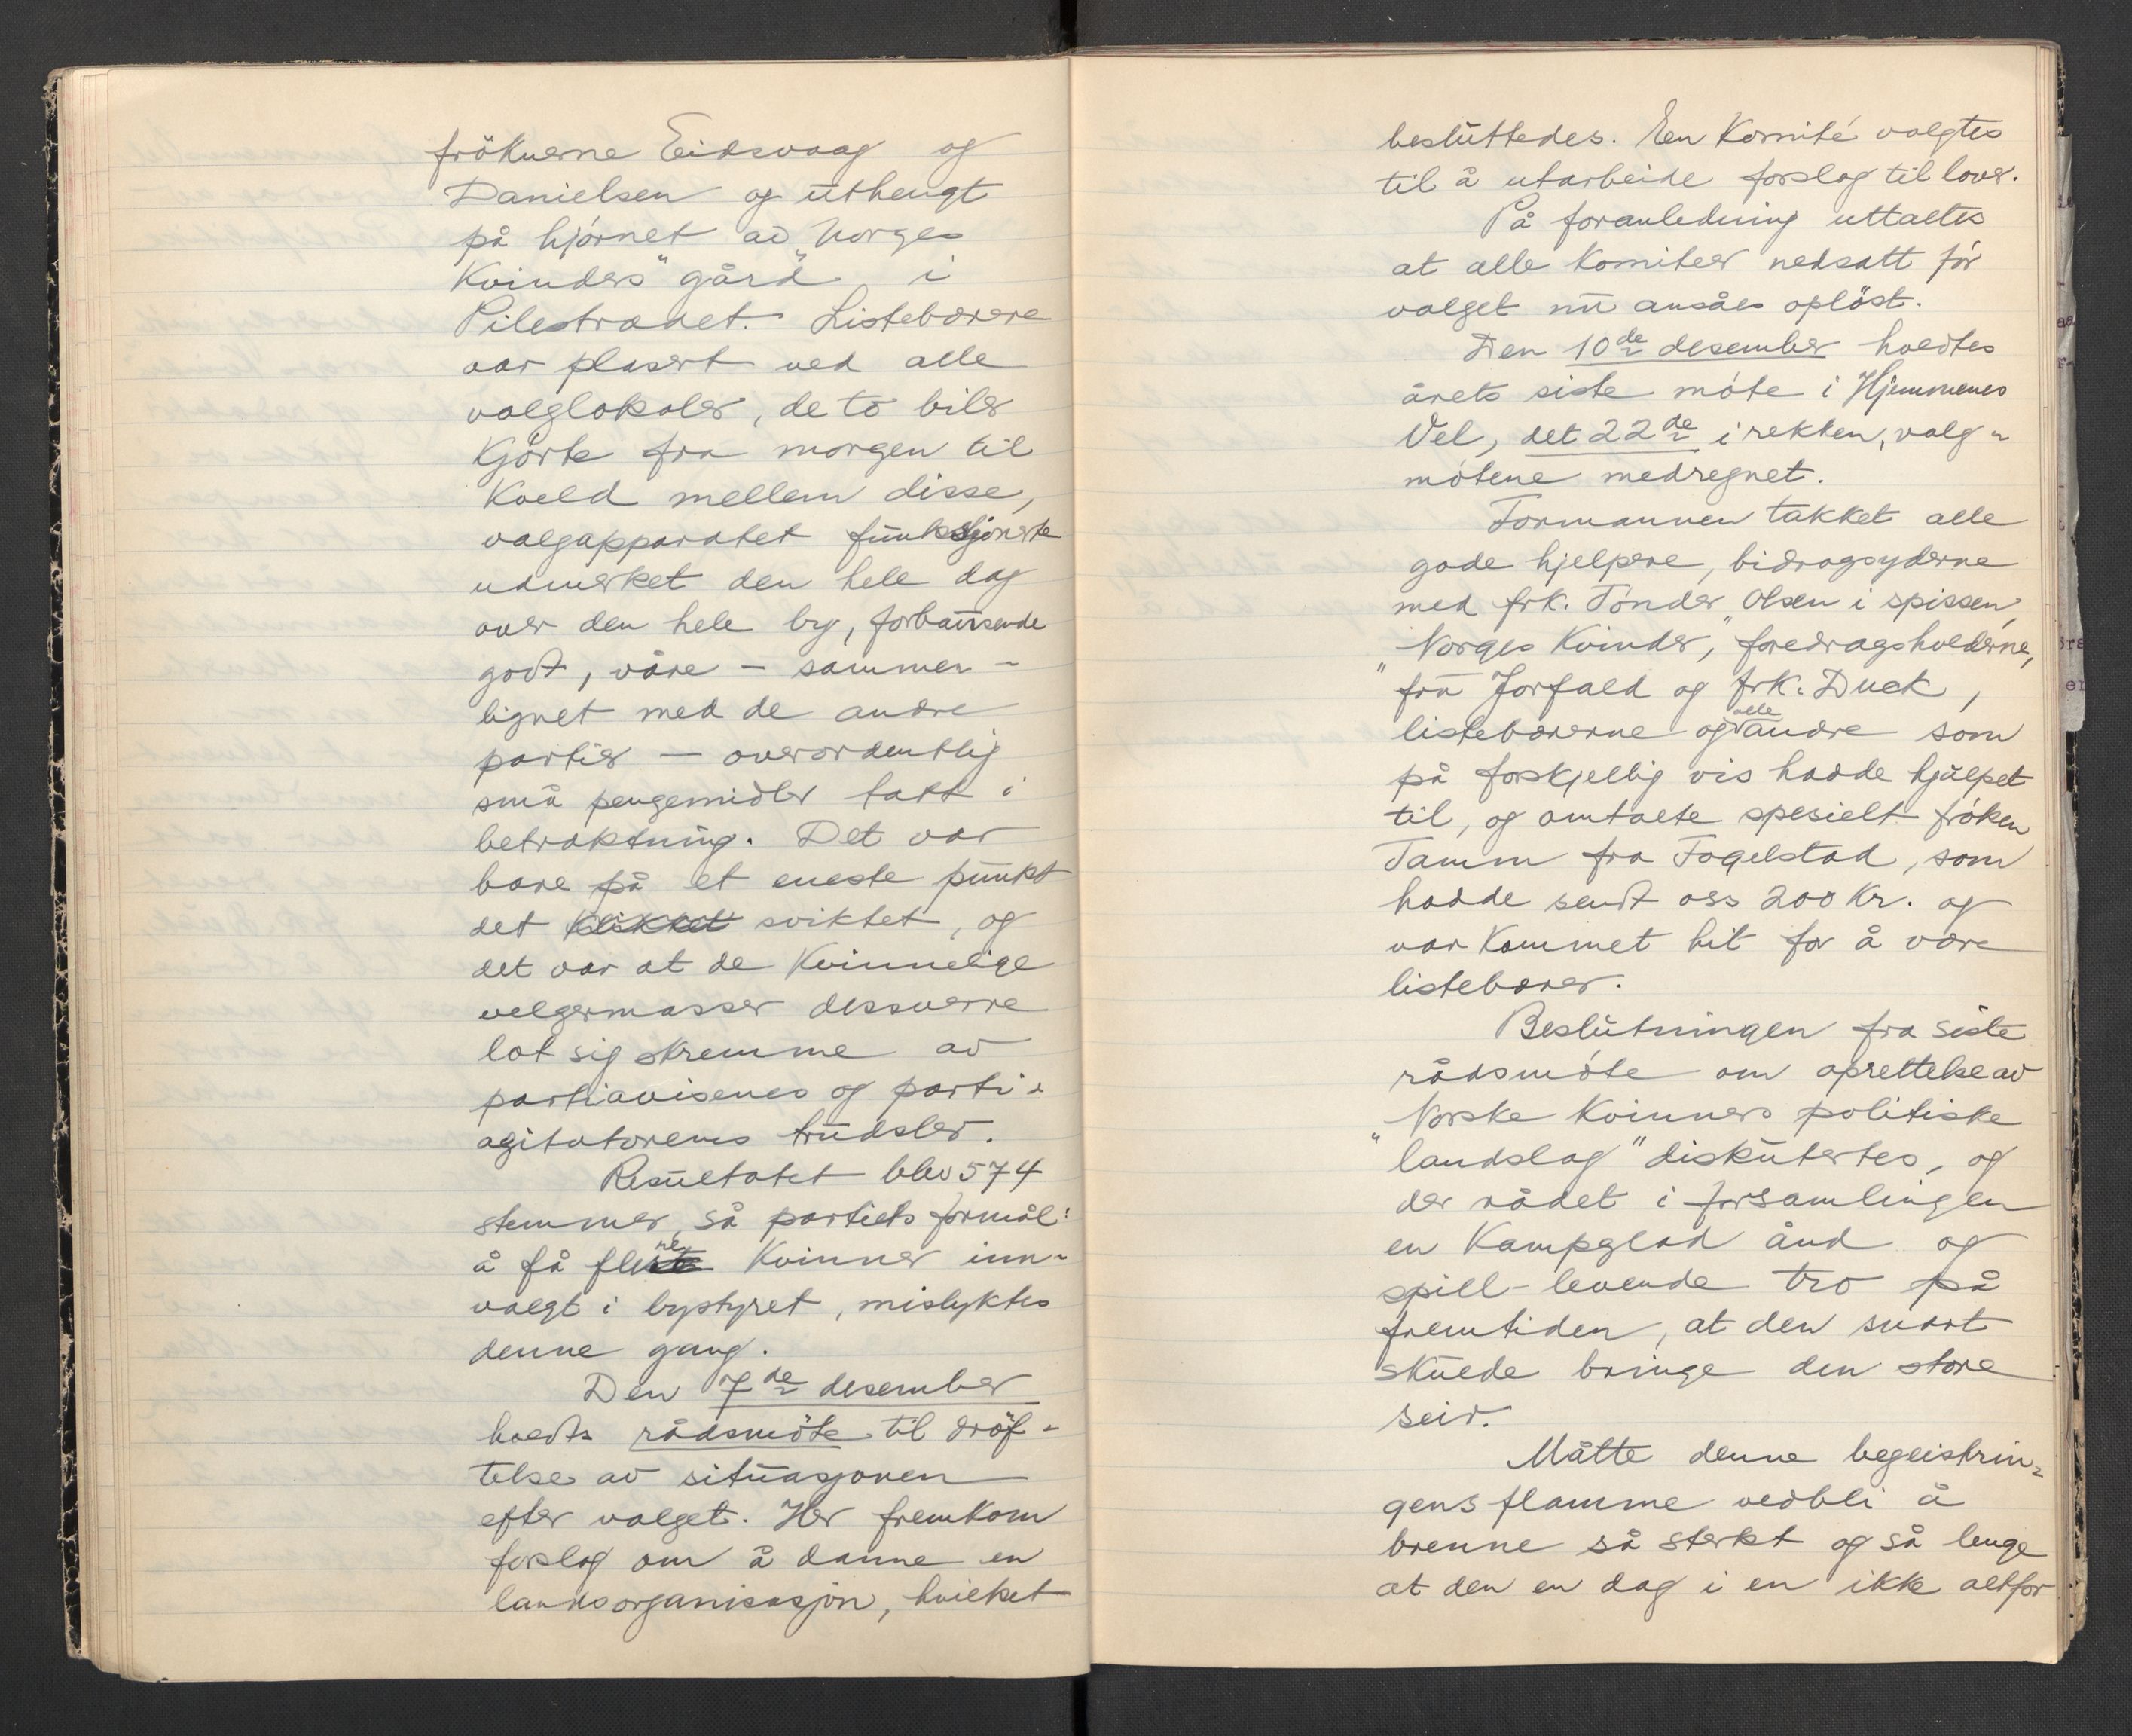 fröknerne Eidsvaag og
Danielsen og uthengt
på hjörnet av „Norges
Kvinders" gård i
Pilestrædet. Listebærere
var plasert ved alle
valglokaler, de to biler
Kjörte fra morgen til
Kveld mellem disse,
valgapparatet funksjonerte
udmerket den hele dag
over den hele by, forbausende
godt, våre – sammen-
lignet med de andre
partier – overordentlig
små pengemidler tatt i
betraktning. Det var
bare på et eneste punkt
det klikket sviktet, og
det var at de Kvinnelige
velgermasser dessverre
lot sig skremme av
partiavisenes og parti-
agitatorenes trudsler.
Resultatet blev 574
stemmer, så partiets formål:
å få flere Kvinner inn-
valgt i bystyret, mislyktes
denne gang.
Den 7de desember
holdts rådsmöte til dröf-
telse av situasjonen
efter valget. Her fremkom
forslag om å danne en
landsorganisasjon, hvilket
besluttedes. Een Komité valgtes
til å utarbeide forslag til lover.
På foranledning uttaltes
at alle Komiteer nedsatt för
valget nu ansåes oplöst.
Den 10de desember holdtes
årets siste möte i Hjemmenes
Vel, det 22de i rekken, valg-
mötene medregnet.
Formannen takket alle
gode hjelpere, bidragsyderne
med frk. Tönder Olsen i spissen,
„Norges Kvinder," foredragsholderne,
fru Jorfald og frk. Duck,
listebærerne og alle andre som
på forskjellig vis hadde hjulpet
til, og omtalte spesielt fröken
Tamm fra Fogelstad, som
hadde sendt oss 200 Kr. og
var Kommet hit for å være
listebærer.
Beslutningen fra siste
rådsmöte om oprettelse av
„Norske Kvinners politiske
landslag" diskutertes, og
der rådet i forsamlingen
en Kampglad ånd og
spill-levende tro på
fremtiden, at den snart
skulde bringe den store
seir.
Måtte denne begeistrin-
gens flamme vedbli å
brenne så sterkt og så lenge
at den en dag i en ikke altfor